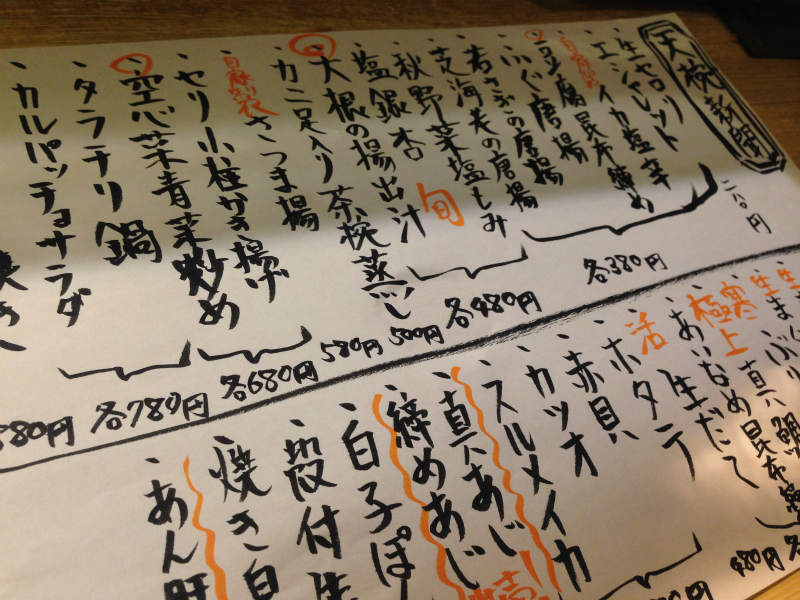 天椀新聞
生セロリ
二八〇円
エシャレット
イカ塩辛
自家製
豆腐昆布締め
ふぐ唐揚
各380円
若さぎの唐揚
芝海老の唐揚
秋野菜塩もみ
旬
塩銀杏
各480円
大根の揚出汁
500円
カニ足入り茶碗蒸し
580円
自家製
さつま揚
セリ小柱かき揚げ
各680円
空心菜青菜炒め
タラチリ鍋
各780円
カルパッチョサラダ
880円
生
生
寒
極上
真鯛昆布締
あいなめ
生だこ
活
ホタテ
赤貝
カツオ
スルメイカ
真あじ
締めあじ
白子ぽ
殻付生
焼き白
あん肝